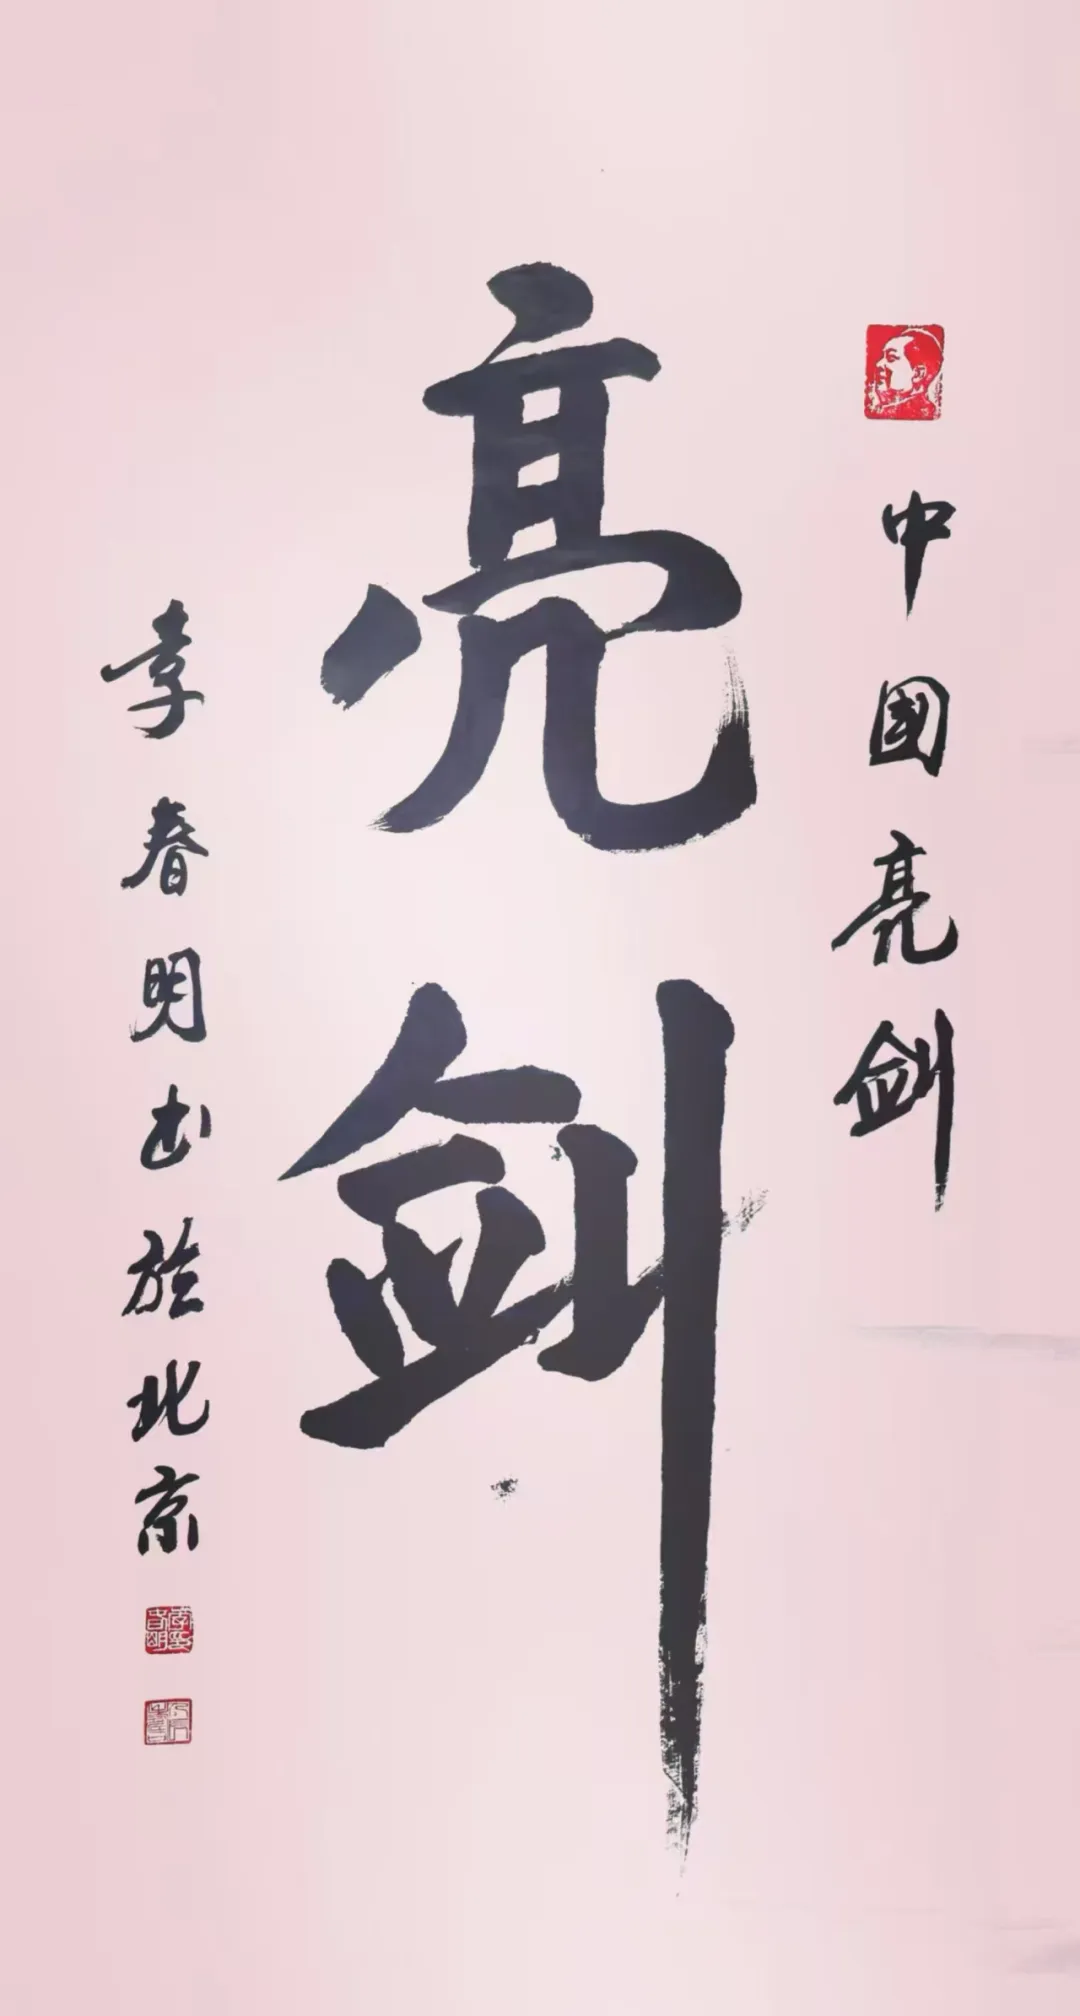 中國亮剑
亮剑
李春明书於北京